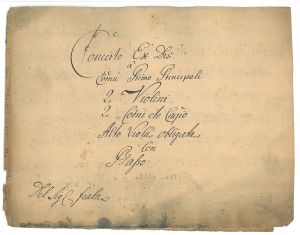 Concerto Ex Dis
a
Corno Primo Principali
2 Violini
2 Corni de Cacia
Alto Viola obligata
Con
Basso
Del Sig